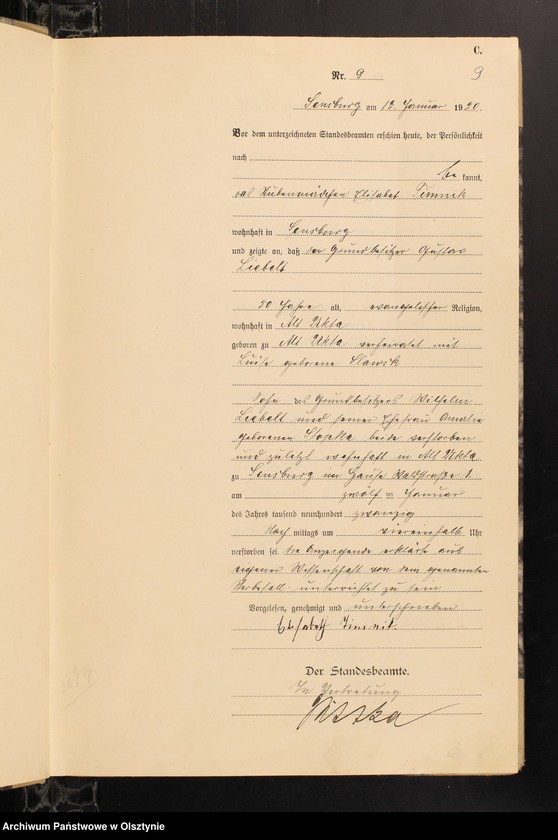 C.
Nr. 9
9
Sensburg am 13. Januar 1920.
Vor dem unterzeichneten Standesbeamten erschien heute, der Persönlichkeit
nach
be kannt,
das Stubenmädchen Elisabet Timnik
wohnhaft in Sensburg
und zeigte an, daß der Grundbesitzer Gustav
Liebelt
50 Jahre alt, evangelischer Religion,
wohnhaft in Alt Ukta
geboren zu Alt Ukta verheiratet mit
Luise geborene Slawik
Sohn des Grundbesitzers Wilhelm
Liebelt und seiner Ehefrau Amalie
geborenen Stopka beide verstorben
und zuletzt wohnhaft in Alt Ukta
zu Sensburg im Hause Waldstraße 1.
am zwölf ten Januar
des Jahres tausend neunhundert zwanzig
Nach mittags um viereinhalb Uhr
verstorben sei. Die Anzeigende erklärt aus
eigener Wissenschaft von dem genannten
Sterbefall unterrichtet zu sein
Vorgelesen, genehmigt und unterschrieben
Elisabeth Timnik.
Der Standesbeamte.
In Vertretung
Archiwum Państwowe w Olsztynie